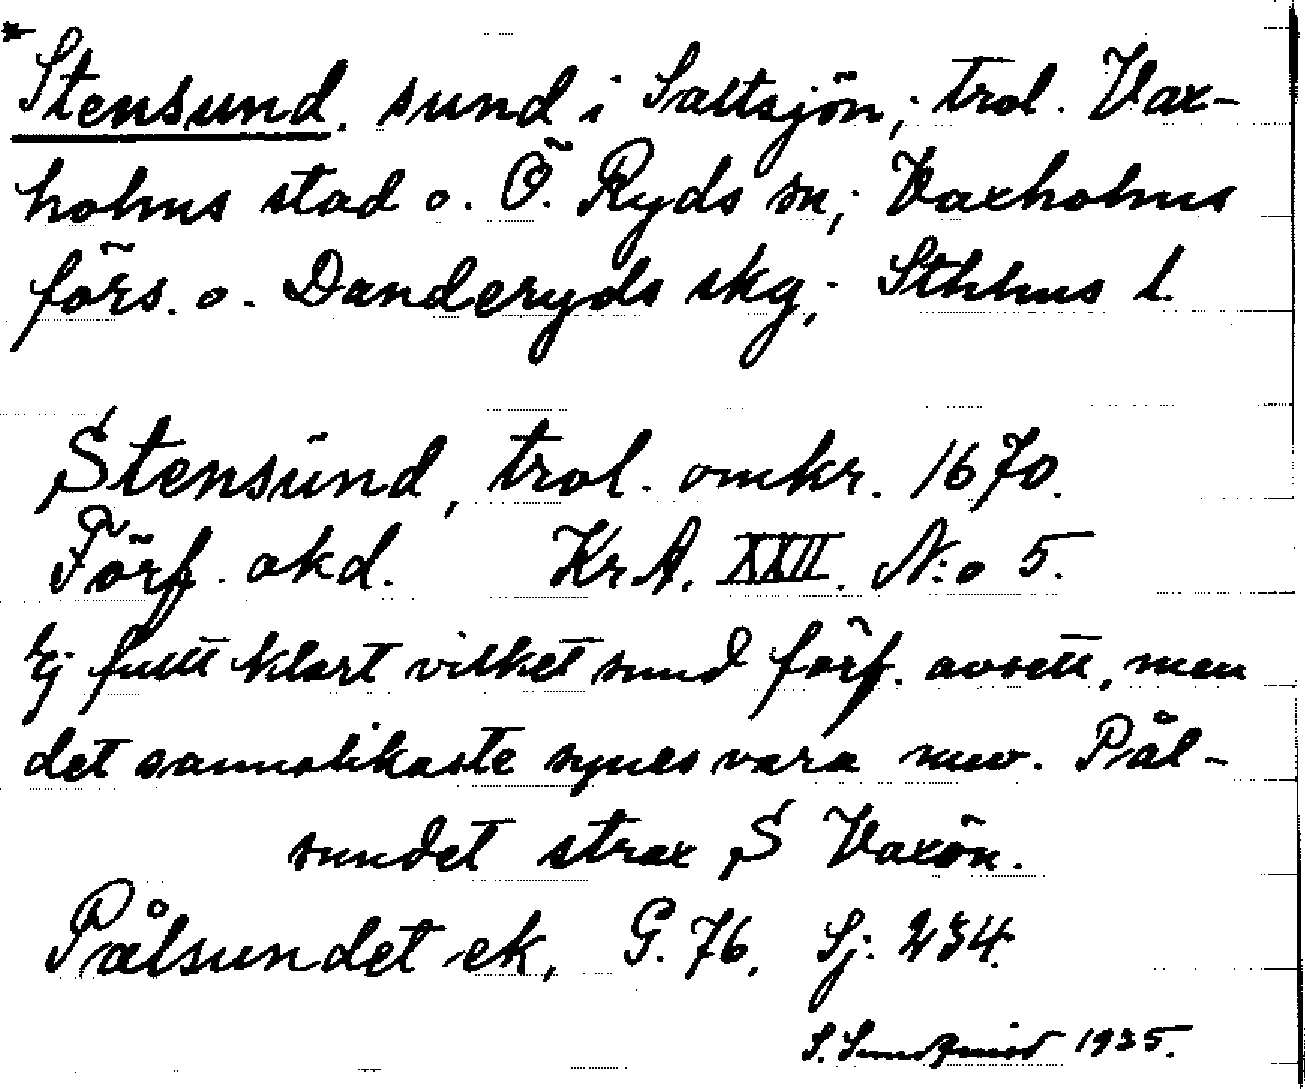 *Stensund. sund i Saltsjön; trol. Vax-
holms stad o. Ö. Ryds sn; Vaxholms
förs. o. Danderyds skg; Sthlms l.
Stensund, trol. omkr. 1670.
Förf. okd. Kr A. XXII. N:o 5.
Ej fullt klart vilket sund förf. avsett, men
det sannolikaste synes vara nuv. Pål-
sundet strax S Vaxön.
Pålsundet ek, G. 76. Sj: 234.
S. 1935.